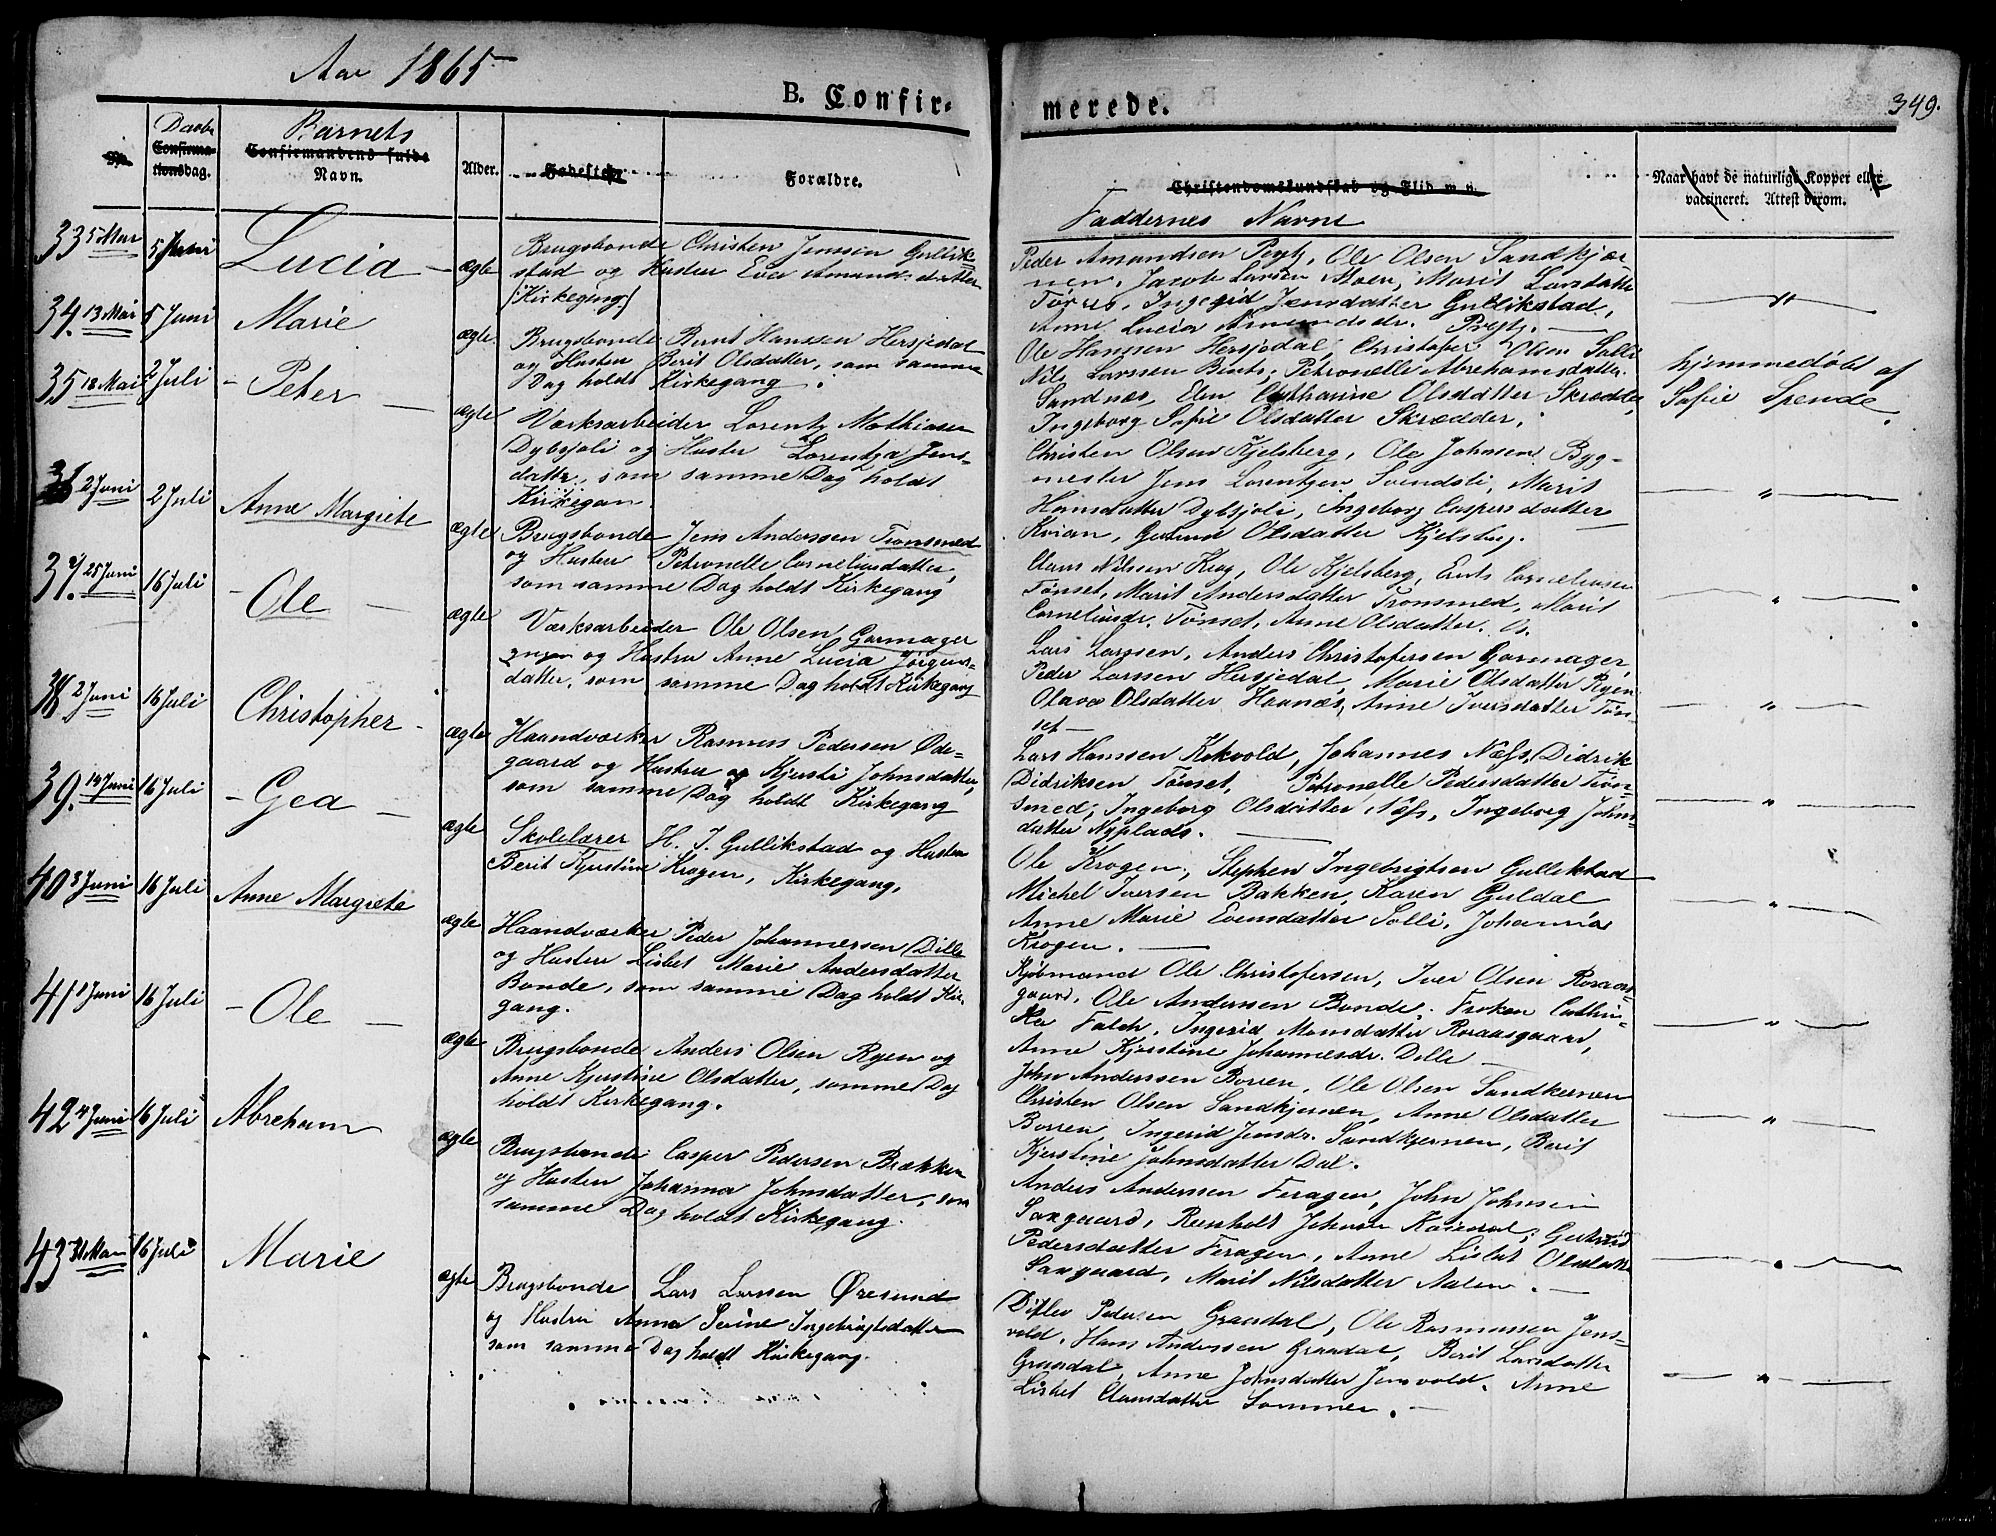 Aar 1865
B. Confir-
merede.
349.
No.
Daabs
Confirma-
tionsdag.
Barnets
Confirmandens fulde
Navn.
Alder.
Fødested
Forældre.
Christendomskundskab og Flid m. v.
Faddernes Navne
Naar havt de naturlige Kopper eller
vaccineret. Attest derom.
33 5 Mai 5 Juni Lucia ægte
Brugsbonde Christen Jenssen Gullik-
stad og Hustru Eva Amundsdatter
(Kirkegang)
Peder Amundsen Prytz, Ole Olsen Sandkjær-
nen, Jacob Larsen Moen, Marit Larsdatter
Tørres, Ingerid Jensdatter Gullikstad,
Anne Lucia Amundsdr. Prytz.
34. 13 Mai 5 Juni Marie ægte
Brugsbonde Bernt Hanssen Hersjedal
og Hustru Berit Olsdatter, som samme
Dag holdt Kirkegang
Ole Hanssen Hersjedal, Christofer Olsen Solli
Nils Larssen Bints, Petronelle Abrehamsdatter
Sandnæs, Elen Catharine Olsdatter Skrædder,
Ingeborg Sofie Olsdatter Skrædder.
hjemmedøbt af
Sofie Spende.
35 18 Mai 2 Juli Peter ægte
Værksarbeider Lorentz Mathiasen
Dybsjoli og Hustru Lorentza Jens-
datter, som samme Dag holdt
Kirkegan
Christen Olsen Kjelsberg, Ole Johnsen Byg-
mester Jens Lorentzen Svendsli, Marit
Hansdatter Dybsjoli, Ingeborg Caspersdatter
Kvian, Gertrud Olsdatter Kjelsberg.
36 2 Juni 2 Juli Anne Margrete ægte
Brugsbonde Jens Anderssen Tronsmed
og Hustru Petronelle Corneliusdatter,
som samme Dag holdt Kirkegang
Claus Nilssen Krog, Ole Kjelsberg, Ents Corneliusen
Tønset, Marit Andersdatter Tronsmed, Marit
Corneliusdr. Tønset, Anne Olsdatter.
37. 25 Juni 16 Juli Ole ægte
Værksarbeider Ole Olsen Garmager
og Hustru Anne Lucia Jørgens-
datter, som samme Dag holdt Kirkegang
Lars Larssen, Anders Christofersen Garmager,
Peder Larssen Hersjedal, Marie Olsdatter Ryen
Olava Olsdatter Haanæs, Anne Iversdatter Tøn-
set
38 2 Juni 16 Juli Christopher ægte
Haandværker Rasmus Pedersen Øde-
gaard og Hustru Kjersti Johnsdatter,
som samme Dag holdt Kirkegang
Lars Hanssen Kokvold, Johannes Næss, Didrik
Didriksen Tønset, Petronelle Pedersdatter Tron-
smed, Ingeborg Olsdatter Næss, Ingeborg Johns-
datter Nyplads.
39. 14 Juni 16 Juli Gea ægte
Skolelærer H. J. Gullikstad og Hustru
Berit Kjerstine Krogen, Kirkegang,
Ole Krogen, Stephen Ingebrigtsen Gullikstad
Michel Iversen Bakken, Karen Guldal
Anne Marie Evensdatter Solli, Johanna
Krogen.
40 3 Juni 16 Juli Anne Margrete ægte
Haandværker Peder Johannessen Dille
og Hustru Lisbet Marie Andersdatter
Bonde, som samme Dag holdt Kir-
gang.
Kjøbmand Ole Christofersen, Iver Olsen Roraas-
gaard, Ole Anderssen Bonde, Frøken Cathrin-
ka Falch, Ingerid Monsdatter Roraasgaard,
Anne Kjerstine Johannesdr. Dille
41 1 Juni 16 Juli Ole ægte
Brugsbonde Anders Olsen Ryen og
Anne Kjerstine Olsdatter, samme Dag
holdt Kirkegang.
John Anderssen Borren, Ole Olsen Sandkernen
Christen Olsen Sandkjernen, Anne Olsdatter
Borren, Ingerid Jensdr. Sandkjernen, Berit
Kjerstine Johnsdatter Dal.
42 4 Juni 16 Juli Abreham ægte
Brugsbonde Casper Pedersen Brækken
og Hustru Johanna Johnsdatter, som
samme Dag holdt Kirkegang.
Anders Anderssen Feragen, John Johnsen
Saxgaard, Reinholt Johnsen Kasendal, Gertrud
Pedersdatter Feragen, Anne Lisbet Olsdatter
Saxgaard, Marit Nilsdatter Aalen.
43 31 Mai 16 Juli Marie ægte
Brugsbonde Lars Larssen Øresund
og Hustru Anna Serine Ingebrigtsdatter
som samme Dag holdt Kirkegang.
Ditlev Pedersen Graadal, Ole Rasmussen Jens-
vold, Hans Anderssen Graadal, Berit Larsdatter
Graadal, Anne Johnsdatter Jensvold, Anne
Lisbet Clausdatter Sommer.